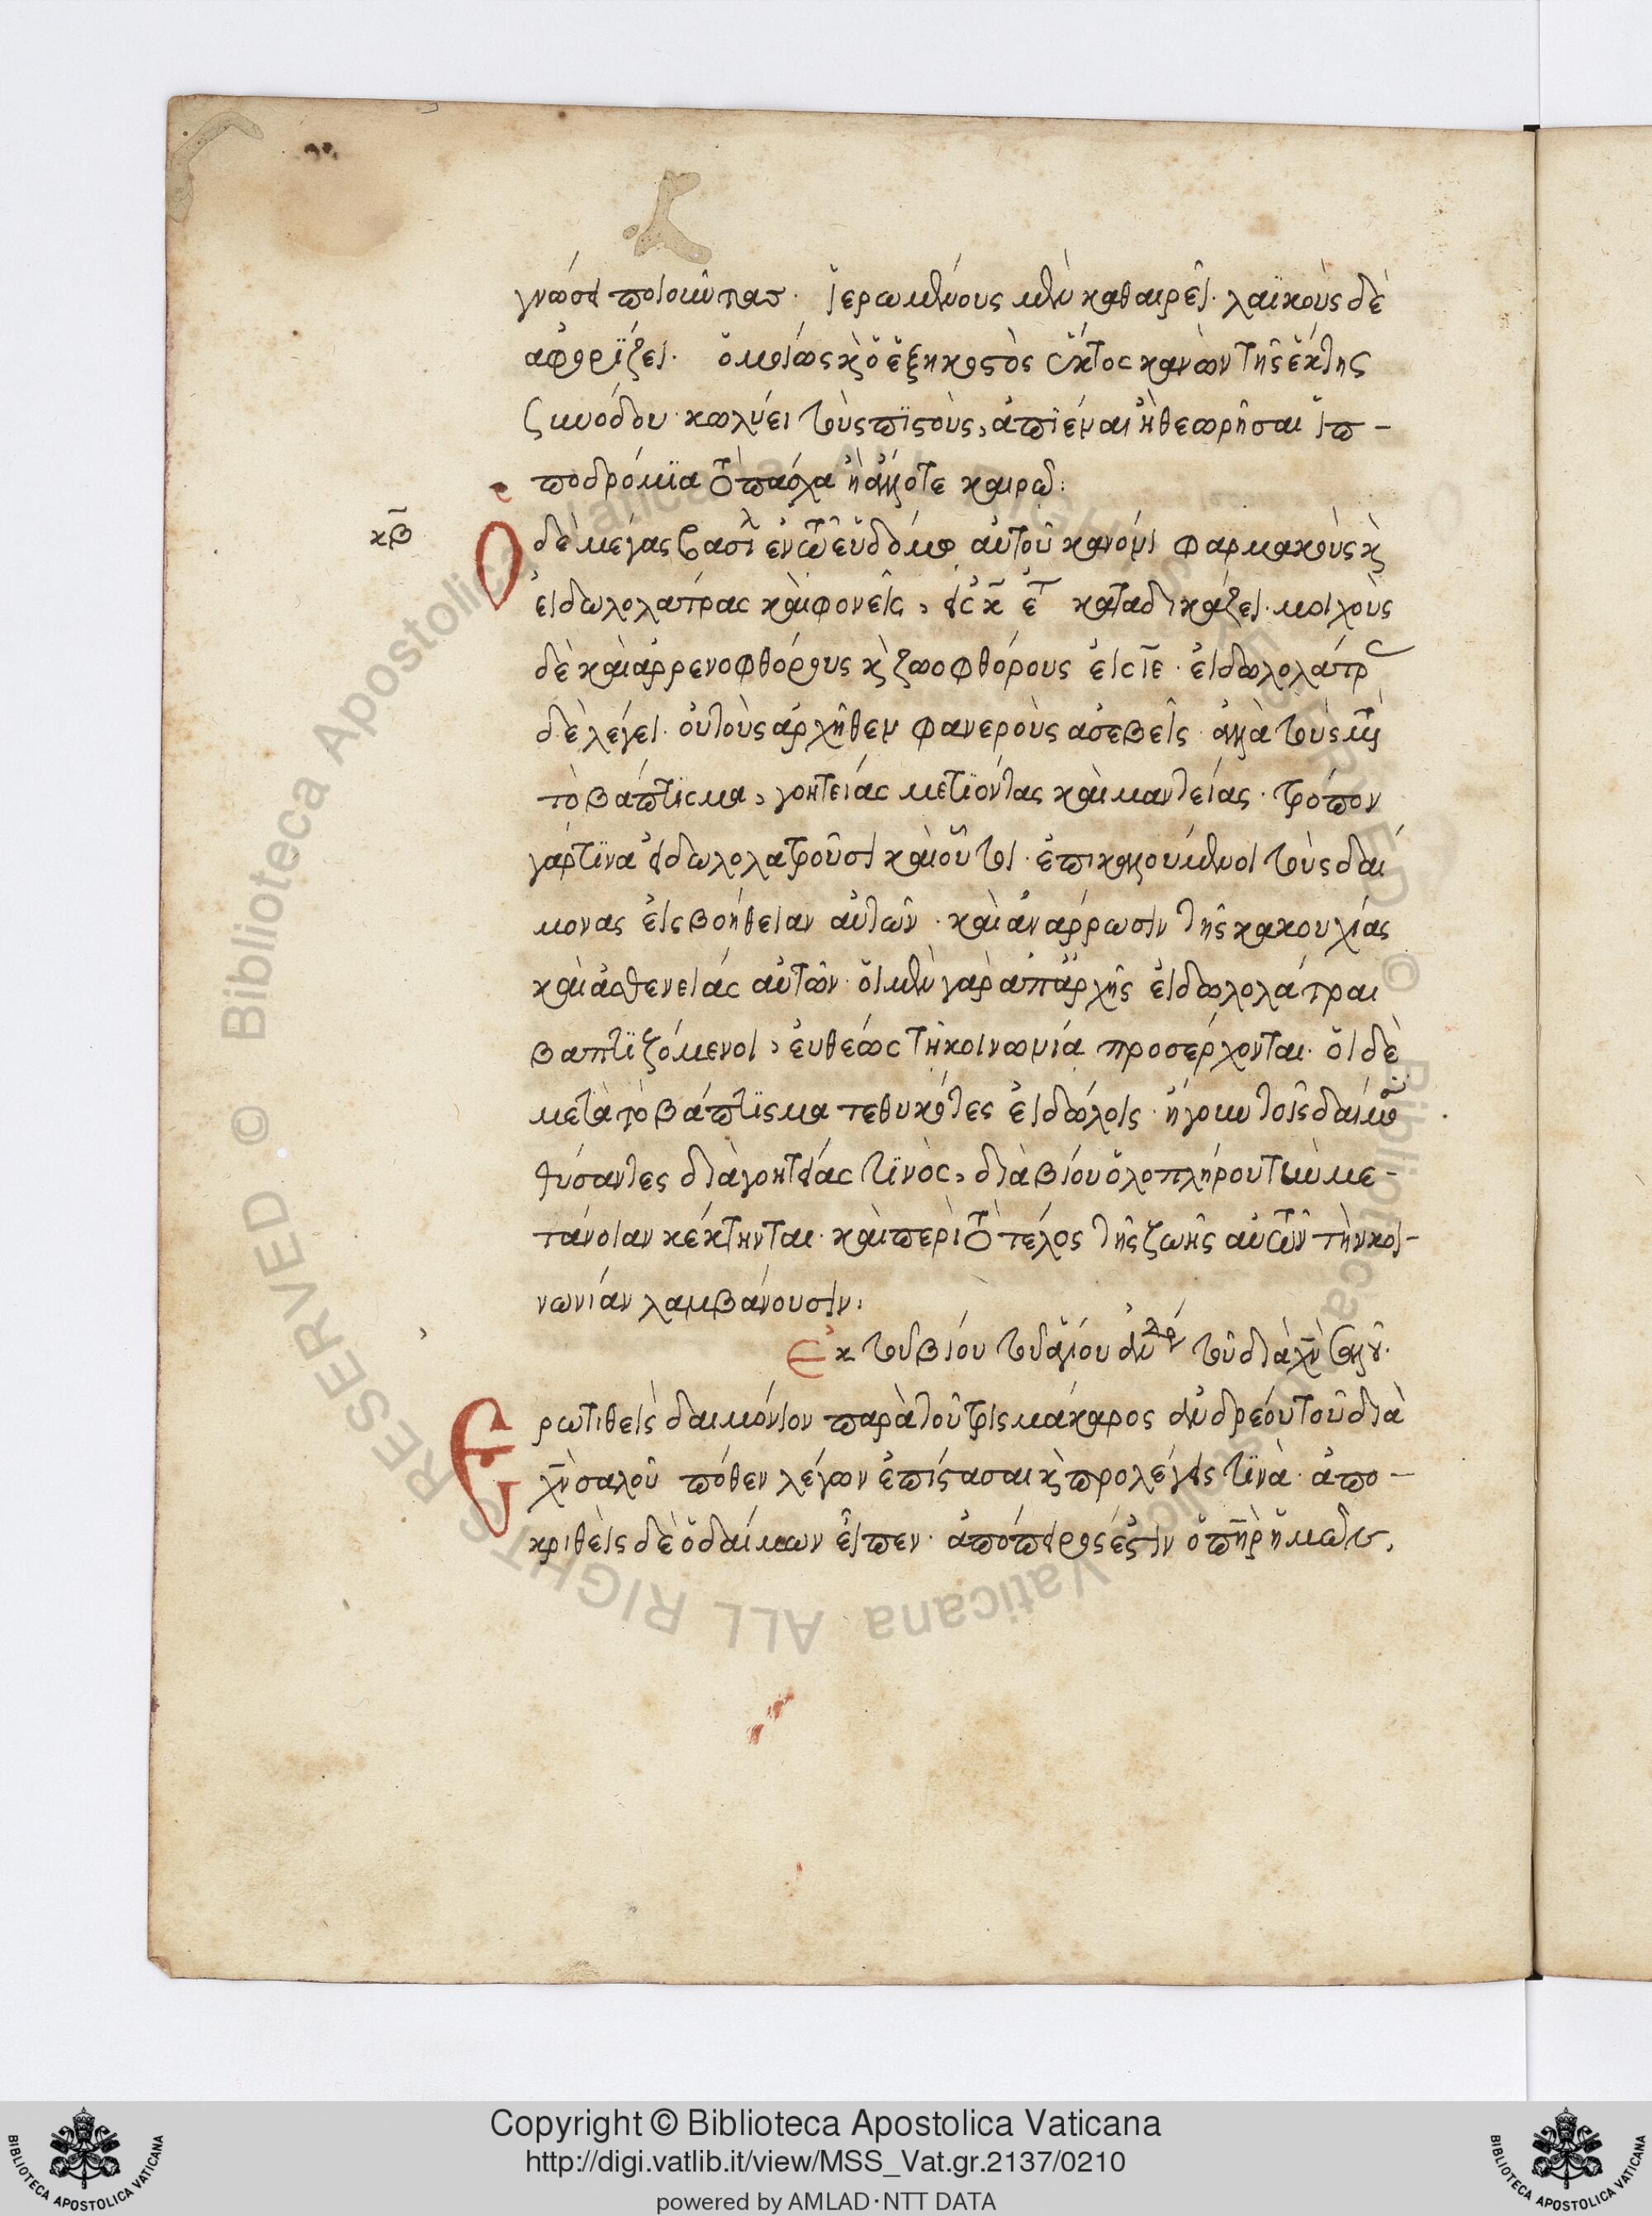 γνώσει ποιοῦντας. ἱερωμένους μὲν καθαιρεῖ. λαϊκοὺς δὲ
ἀφορίζει. ὁμοίως κ(αὶ) ὁ ἑξηκοστὸς ἕκτος κανὼν τῆς ἕκτης
συνόδου κωλύει τοὺς πιστοὺς, ἀπιέναι ἢ θεωρῆσαι ἱπ-
ποδρόμια τὸ πασχα ἢ ἄλλοτε καιρῶ:
κβ
Ὁ δὲ μέγας βασιλ ἐν τῶ ἑβδόμω αὐτοῦ κανόνι φαρμακοὺς κ(αὶ)
εἰδωλολάτρας καὶ φονεῖς, εἰς κ ετ καταδικάζει. μοιχοὺς
δὲ καὶ ἀρρενοφθόρους κ(αὶ) ζωοφθόρους εἰς ιε. εἰδωλολάτρ
δὲ λέγει. οὐ τοὺς ἀρχῆθεν φανεροὺς ἀσεβεῖς. ἀλλὰ τοὺς μετ
τὸ βάπτισμα, γοητείας μετιόντας καὶ μαντείας. τρόπον
γάρ τινα εἰδωλολατροῦσι καὶ οὗτοι. ἐπικαλούμενοι τοὺς δαί
μονας εἰς βοήθειαν αὐτῶν. καὶ ἀνάρρωσιν τῆς κακουχίας
καὶ ἀσθενείας αὐτῶν. οἱ μὲν γὰρ ἀπαρχῆς εἰδωλολάτραι
βαπτιζόμενοι, εὐθέως τῆ κοινωνία προσέρχονται. οἱ δὲ
μετὰ τὸ βάπτισμα τεθυκότες εἰδώλοις. ἤγουν τοῖς δαίμο
θύσαντες διὰ γοητείας τινὸς, διὰ βίου ὁλοπλήρου τὴν με-
τάνοιαν κέκτηνται. καὶ περὶ τὸ τέλος τῆς ζωῆς αὐτῶν τὴν κοι-
νωνίαν λαμβάνουσιν:
Ἐκ τοῦ βίου τοῦ ἁγίου ἀνδρέ τοῦ διὰ χν σαλοῦ.
Ἐρωτιθεὶς δαιμόνιον παρὰ τοῦ τρισμάκαρος ἀνδρέου τοῦ διὰ
χν σαλοῦ πόθεν λέγων ἐπίστασαι κ(αὶ) προλέγεις τινὰ. ἀπο-
κριθεὶς δὲ ὁ δαίμων εἶπεν. ἀπόπειρός ἐστιν ὁ πηρ ἡμῶν.